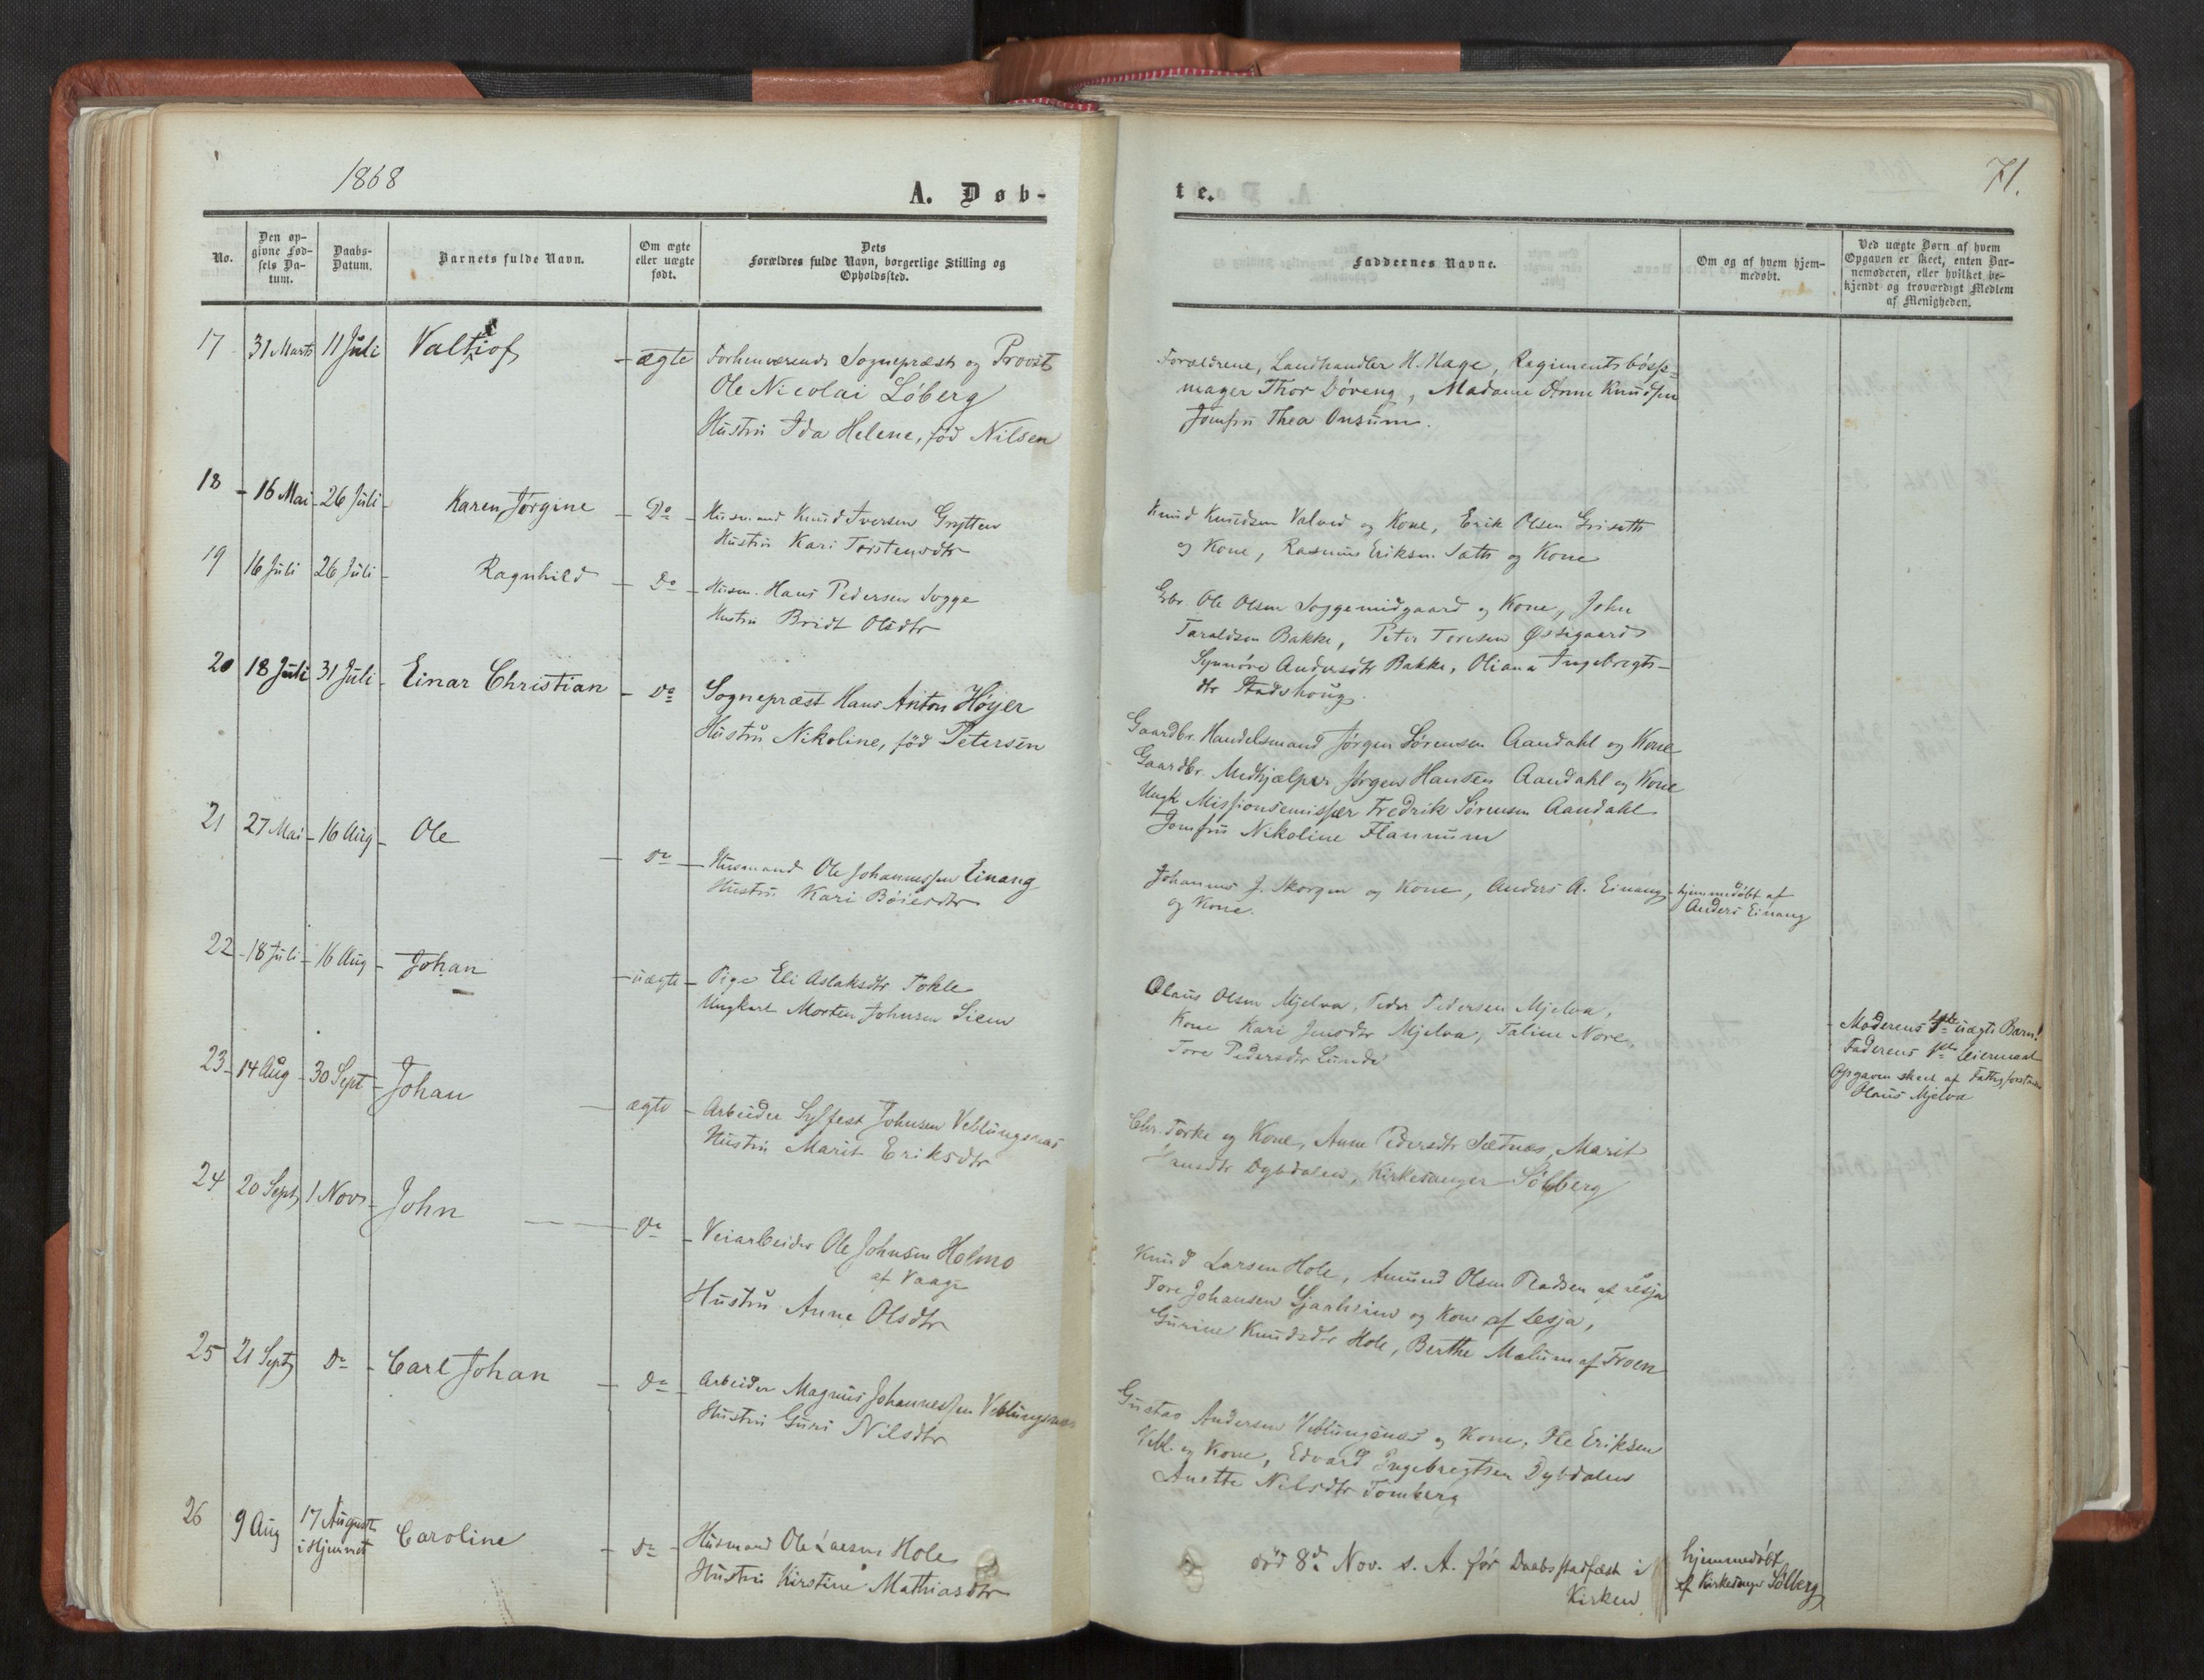 1868
A. Døb-
No.
Den op-
givne Fød-
sels Da-
tum.
Daabs-
Datum.
Barnets fulde Navn.
Om ægte
eller uægte
født.
Dets
Forældres fulde Navn, borgerlige Stilling og
Opholdssted.
17 31 Marts 11 Juli Valtiof ægte Forhenværende Sognepræst og Provst
Ole Nicolai Løberg
Hustru Ida Helene, fød Nilsen
18 16 Mai 26 Juli Karen Jørgine Do Husmand Knud Iversen Grytten
Hustru Kari Torstensdtr
19 16 Juli 26 Juli Ragnhild Do Husm. Hans Pedersen Sogge
Hustru Bridt Olsdtr
20 18 Juli 31 Juli Einar Christian Do Sognepræst Hans Anton Høyer
Hustru Nikoline, fød Petersen
21 27 Mai 16 Aug Ole Do Husmand Ole Johannessen Einang
Hustru Kari Bøiesdtr
22 18 Juli 16 Aug Johan uægte Pige Eli Aslaksdtr Tokle
Ungkarl Morten Johnsen Siem
23 14 Aug 30 Sept Johan ægte Arbeider Sylfest Johnsen Veblungsnæs
Hustru Marit Eriksdtr
24 20 Sept 1 Nov John Do Veiarbeider Ole Johnsen Holmo
af Vaage
Hustru Anne Olsdtr
25 21 Sept Do Carl Johan Do Arbeider Magnus Johannessen Veblungsnæs
Hustru Guri Nilsdtr
26 9 Aug 17 August
i Hjemmet Caroline Do Husmand Ole Larsen Hole
Hustru Kirstine Mathiasdtr
te.
71.
Faddernes Navne.
Om og af hvem hjem-
medøbt.
Ved uægte Børn af hvem
Opgaven er skeet, enten Bar-
nemoderen, eller hvilket be-
kjendt og troværdigt Medlem
af Menigheden.
Forældrene, Landhandler H. Hage, Regimentsbøsse-
mager Thor Døveng, Madame Anne Knudsen
Jomfru Thea Onsum.
Knud Knudsen Valved og Kone, Erik Olsen Griseth
og Kone, Rasmus Eriksen Sæth og Kone
Gbr. Ole Olsen Soggemidgaard og Kone, John
Taraldsen Bakke, Peter Toresen Øssigaard
Synnøve Andersdtr Bakke, Oliana Ingebrigts-
dtr Stadshoug.
Gaardbr. Handelsmand Jørgen Sørensen Aandahl og Kone
Gaardbr. Medhjælper Jørgen Hansen Aandahl og Kone
Ungk Missionsemissær Fredrik Sørensen Aandahl
Jomfru Nikoline Flannum
Johannes J. Skorgen og Kone, Anders A. Einang
og Kone.
hjemmedøbt af
Anders Einang
Olaus Olsen Mjelva, Peder Pedersen Mjelva,
Kone Kari Jensdtr Mjelva, Taline Nore,
Tore Pedersdtr Lunde
Moderens uægte Barn!
Faderens 1ste Leiermaal
Opgaven skeet af
Olaus Mjelva
Chr. Torke og Kone, Anne Pedersdtr Sætnæs, Marit
Dybdalen, Kirkesanger Sølberg
Knud Larsen Hole, Amund Olsen af Lesja
Tore Johansen og Kone af Lesja,
Gurine Knudsdtr Hole, Berthe Mælum af Froen
Gustav Andersen Veblungsnæs og Kone, Ole Eriksen
Vebl. og Kone, Edvard Ingebregtsen Dybdalen
Anette Nilsdtr Tomberg
død 8de Nov. s. A. før Daabsstadfæst i
Kirken
hjemmedøbt
af Kirkesanger Sølberg